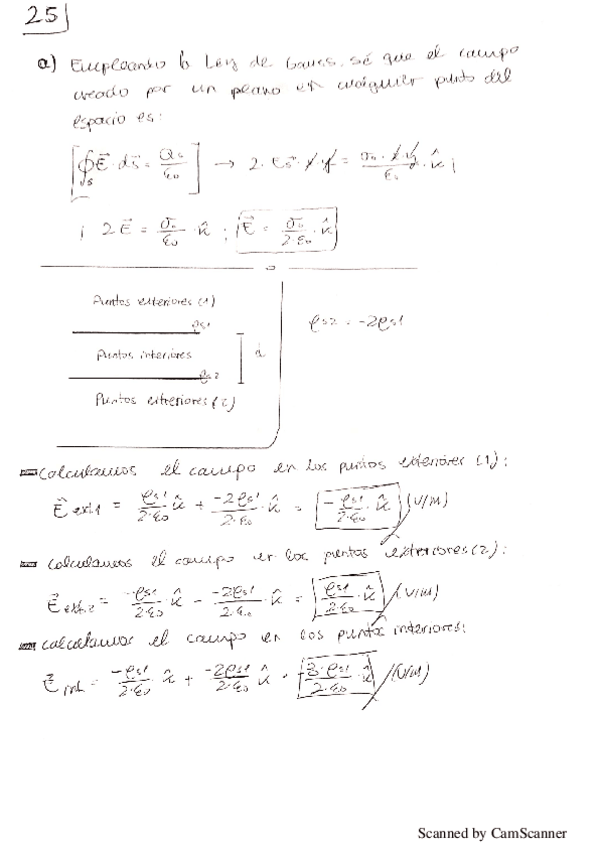 25
a) Empleando la Ley de Gauss, sé que el campo
creado por un plano en cualquier punto del
espacio es:
[∮s E⃗ · ds⃗ = Qs/ε₀] → 2 · Es⃗ · y · y = σ₀ · y · y/ε₀ · k̂ ;
; 2E⃗ = σ₀/ε₀ · k̂ ; E⃗ = σ₀/2·ε₀ · k̂
Puntos exteriores (1)
ρs1
Puntos interiores
d
ρs2
Puntos exteriores (2)
ρs2 = -2ρs1
calculamos el campo en los puntos exteriores (1):
E⃗ext.1 = ρs1/2·ε₀ k̂ + -2ρs1/2·ε₀ · k̂ = - ρs1/2·ε₀ · k̂ (V/m)
calculamos el campo en los puntos exteriores (2):
E⃗ext.2 = -ρs1/2·ε₀ k̂ - -2ρs1/2·ε₀ · k̂ = ρs1/2·ε₀ · k̂ (V/m)
calculamos el campo en los puntos interiores:
E⃗int = -ρs1/2·ε₀ · k̂ + -2ρs1/2·ε₀ k̂ = -3·ρs1/2·ε₀ · k̂ (V/m)
Scanned by CamScanner